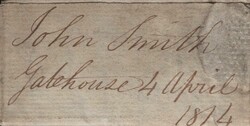 John Smith
Gatehouse 4 April
1814